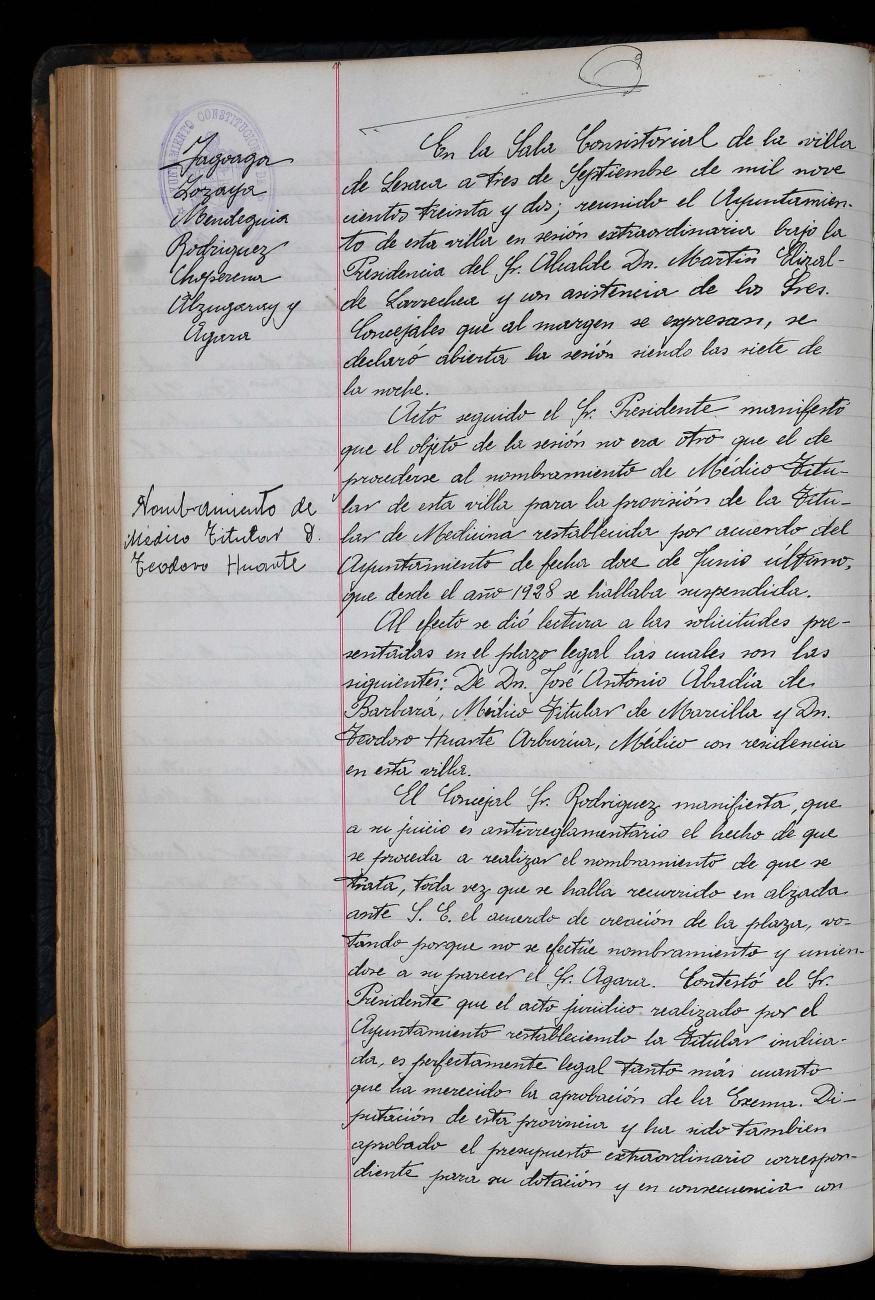 AYUNTAMIENTO CONSTITUCIONAL DE
Jagoaga
Lozaya
Mendeguia
Rodriguez
Choperena
Alzugaray y
Agara
En la Sala Consistorial de la villa
de Lesaca a tres de Septiembre de mil nove
cientos treinta y dos; reunido el Ayuntamien-
to de esta villa en sesión extraordinaria bajo la
Presidencia del Sr. Alcalde Dn. Martín Elizal-
de Larrechea y con asistencia de los Sres.
Concejales que al margen se expresan, se
declaró abierta la sesión siendo las siete de
la noche.
Acto seguido el Sr. Presidente manifestó
que el objeto de la sesión no era otro que el de
procederse al nombramiento de Médico Titu-
lar de esta villa para la provisión de la Titu-
lar de Medicina restablecida por acuerdo del
Ayuntamiento de fecha doce de Junio último,
que desde el año 1928 se hallaba suspendida.
Nombramiento de
Médico Titular D.
Teodoro Huarte
Al efecto se dió lectura a las solicitudes pre-
sentadas en el plazo legal las cuales son las
siguientes: De Dn. José Antonio Abadía de
Barbará, Médico Titular de Marcilla y Dn.
Teodoro Huarte Arburúa, Médico con residencia
en esta villa.
El Concejal Sr. Rodriguez manifiesta, que
a su juicio es antirreglamentario el hecho de que
se proceda a realizar el nombramiento de que se
trata, toda vez que se halla recurrido en alzada
ante S. E. el acuerdo de creación de la plaza, vo-
tando porque no se efectúe nombramiento y unien-
dose a su parecer el Sr. Agara. Contestó el Sr.
Presidente que el acto jurídico realizado por el
Ayuntamiento restableciendo la Titular indica-
da, es perfectamente legal tanto más cuanto
que ha merecido la aprobación de la Exema. Di-
putación de esta provincia y ha sido tambien
aprobado el presupuesto extraordinario correspon-
diente para su dotación y en consecuencia con